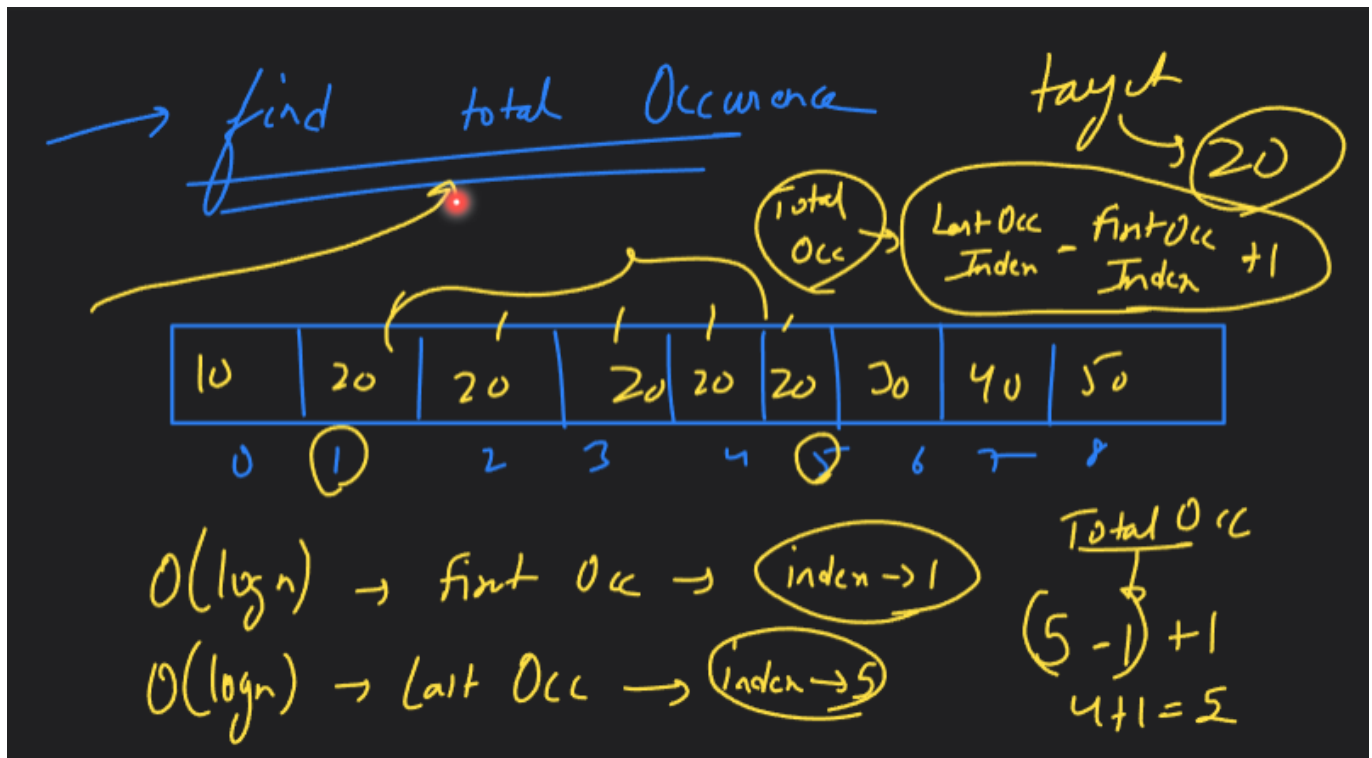 → find total Occurence
target
→ 20
Total Occ → Last Occ Index - First Occ Index +1
10 20 20 20 20 20 30 40 50
0 1 2 3 4 5 6 7 8
O(logn) → first Occ → index → 1
O(logn) → Last Occ → index → 5
Total Occ
(5-1)+1
4+1=5